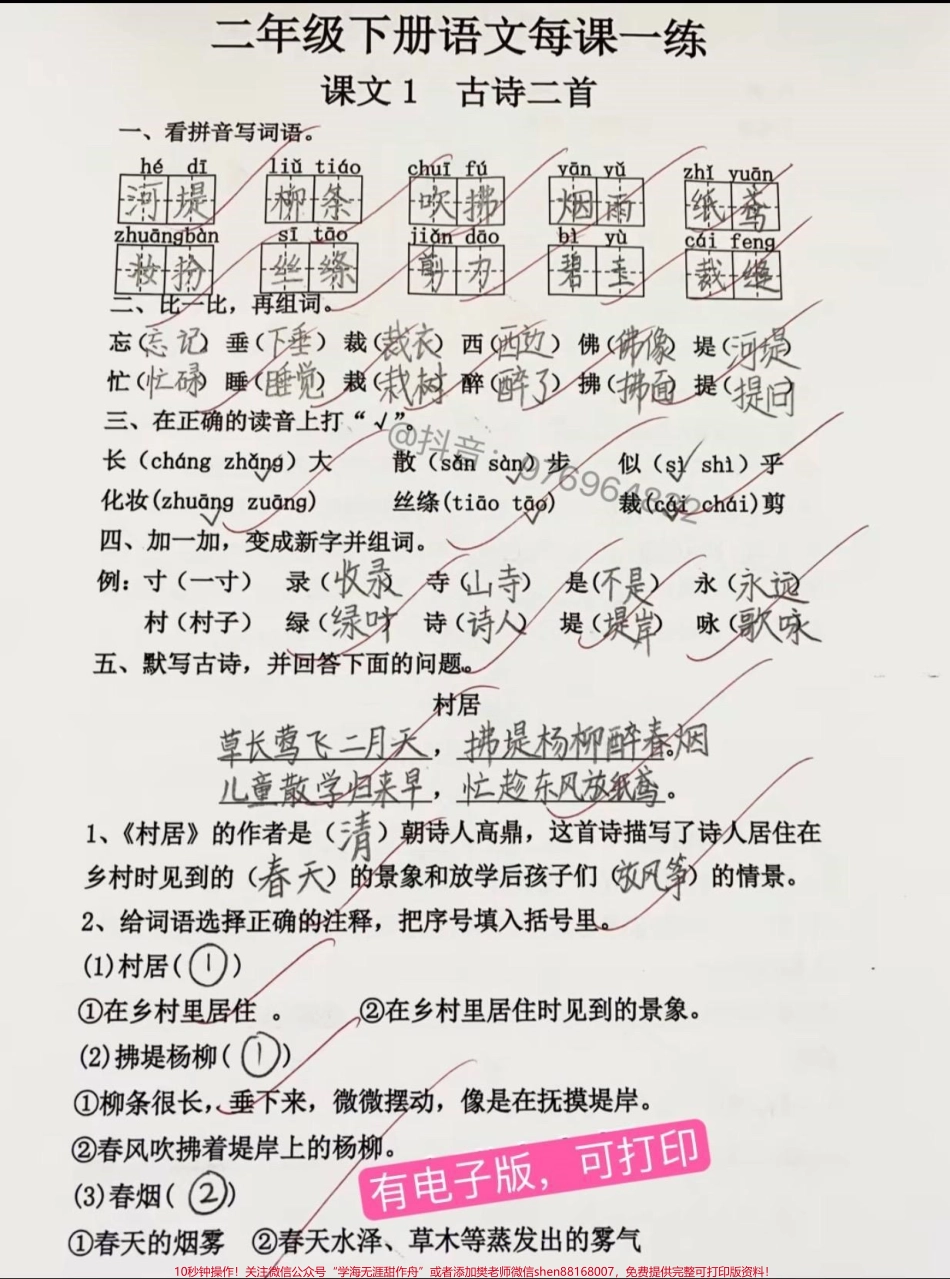 二年级下册语文每课一练
课文1 古诗二首
一、看拼音写词语。
hé dī liǔ tiáo chuī fú yān yǔ zhǐ yuān
河堤 柳条 吹拂 烟雨 纸鸢
zhuāngbàn sī tāo jiǎn dāo bì yù cái feng
妆扮 丝绦 剪刀 碧玉 裁缝
二、比一比，再组词。
忘(忘记) 垂(下垂) 裁(裁衣) 西(西边) 佛(佛像) 堤(河堤)
忙(忙碌) 睡(睡觉) 栽(栽树) 醉(醉了) 拂(拂面) 提(提问)
三、在正确的读音上打“√”。
长（cháng zhǎng）大 散（sǎn sàn）步 似（sì shì）乎
化妆(zhuāng zuāng) 丝绦(tiāo tāo) 裁(cái chái)剪
四、加一加，变成新字并组词。
例：寸（一寸） 录（收录） 寺（山寺） 是(不是) 永（永远)
村（村子） 绿（绿叶） 诗（诗人） 堤（堤岸） 咏（歌咏
五、默写古诗，并回答下面的问题。
村居
草长莺飞二月天，拂堤杨柳醉春烟。
儿童散学归来早，忙趁东风放纸鸢。
1、《村居》的作者是（清）朝诗人高鼎，这首诗描写了诗人居住在
乡村时见到的（春天）的景象和放学后孩子们（放风筝）的情景。
2、给词语选择正确的注释，把序号填入括号里。
(1)村居(①)
①在乡村里居住 。 ②在乡村里居住时见到的景象。
(2)拂堤杨柳(①)
①柳条很长，垂下来，微微摆动，像是在抚摸堤岸。
②春风吹拂着堤岸上的杨柳。
(3)春烟(②)
①春天的烟雾 ②春天水泽、草木等蒸发出的雾气
有电子版，可打印
@抖音：976964832
10秒钟操作！关注微信公众号“学海无涯甜作舟”或者添加樊老师微信shen88168007，免费提供完整可打印版资料！